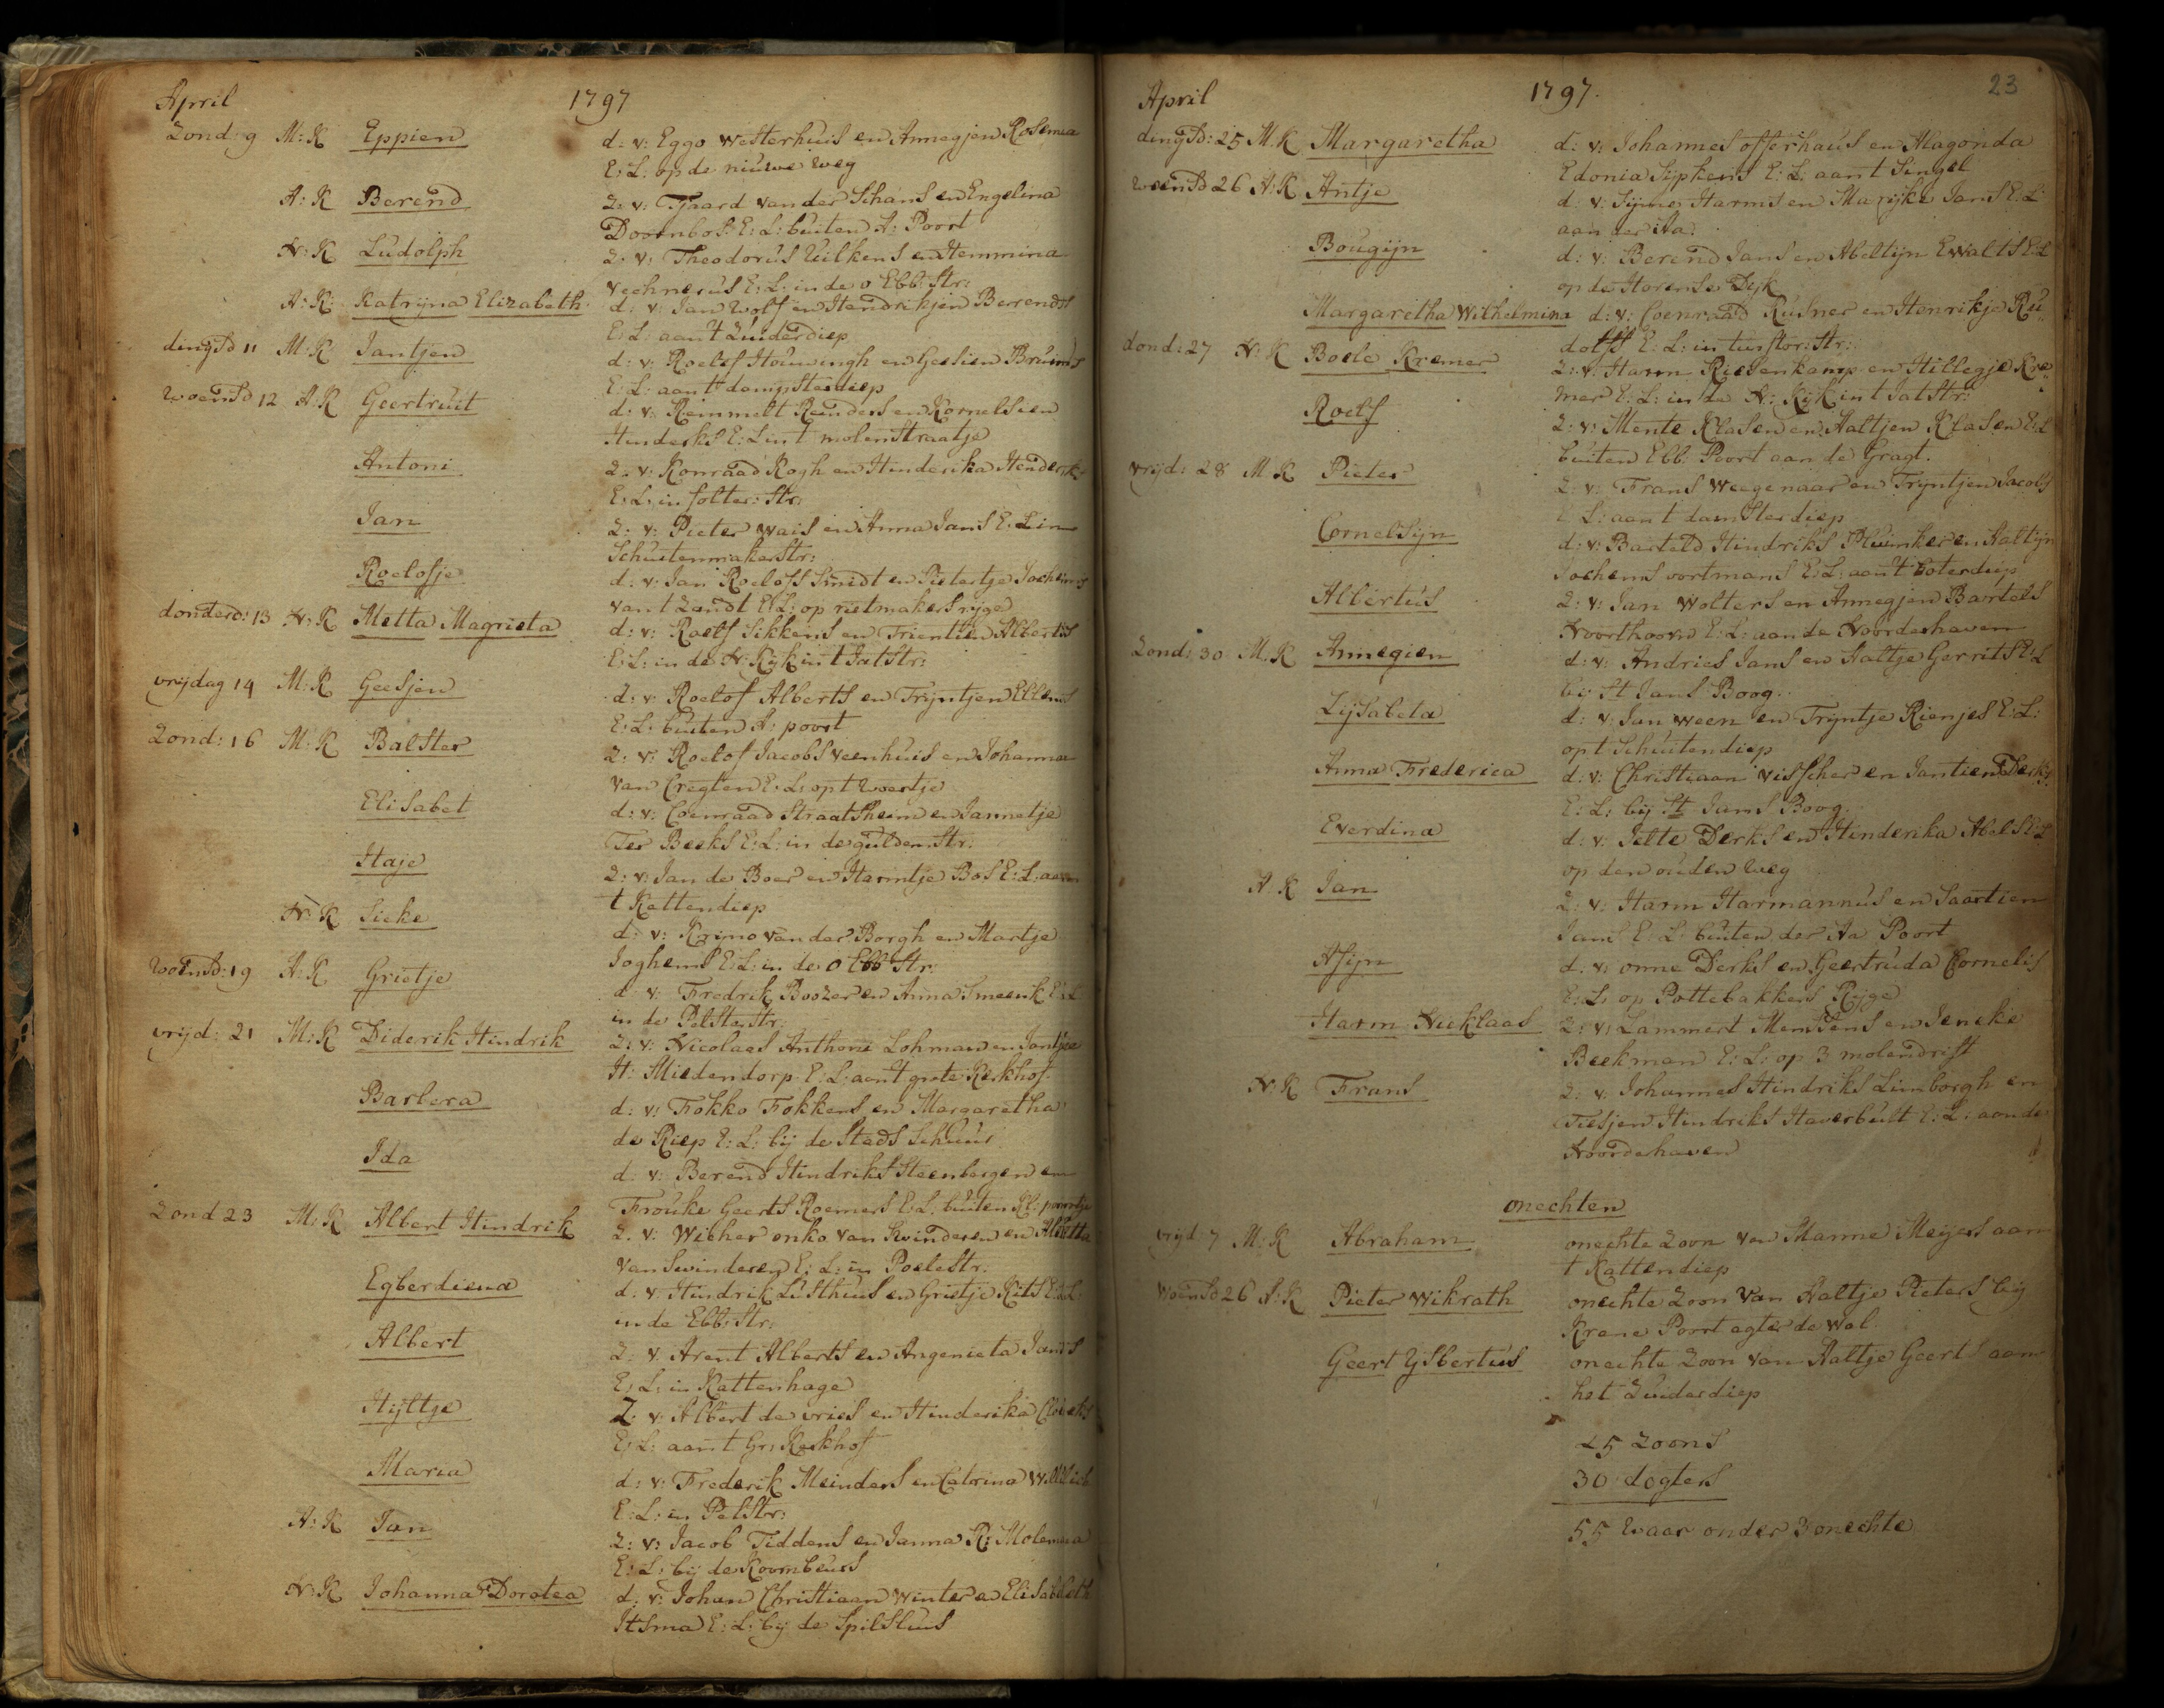 April 1797
Zond: 9 M: K Eppien d: v: Eggo Westerhuis en Annegjen Rosema
E: L: op de nieuwe weg
A: K Berend Z: v: Tjaard van der Schans en Engelina
Doornbos E: L: buiten A: Poort
N: K Ludolph Z: v: Theodorus Uilkens en Hemmina
Vechnerus E: L: in de o Ebb: Str:
A: K: Katryna Elizabeth d: v: Jan Wolf en Hendrikjen Berrends
E: L: aant Zuiderdiep
dingsd 11 M: K Jantjen d: v: Roelof Houwingh en Geesien Bruins
E: L: aant damsterdiep
woensd 12 A: K Geertruit d: v: Remmelt Reinders en Kornelsien
Hinderks E: L int molenstraatje
Antoni Z: v: Konraad Kogh en Hinderika Henderiks
E: L: in folter: Str:
Jan Z: v: Pieter Wais en Anna Jans E: L in
Schuitenmaker Str:
Roelofje d: v: Jan Roelofs Smidt en Pietertje Jochems
van t Zandt E: L: op rietmakers ryge
donterd: 13 N: K Metta Magrieta d: v: Roelf Sikkens en Trientien Alberts
E: L: in de N: Kijk int Jat Str:
vrijdag 14 M: K Geesjen d: v: Roelof Alberts en Tryntjen Ellens
E: L: buiten A: poort
Zond: 16 M: K Balster Z: v: Roelof Jacobs Veenhuis en Johanna
van Cregten E: L: opt Woertje
Elisabet d: v: Coenraad Straatsheim en Jannetje
Ter Beeks E: L: in de gulden Str:
Haje Z: v: Jan de Boer en Harmtje Bos E: L: aan
t Kattendiep
N: K Sieke d: v: Krimo van der Borgh en Martje
Joghems E: L: in de o Ebb Str:
woensd: 19 A: K Grietje d: v: Fredrik Boozer en Anna Smeenk E: L
in de Pelster Str:
vrijd: 21 M: K Diderik Hindrik Z: v: Nicolaas Anthoni Lohman en Jantjen
H: Miedendorp E: L: aant grote Kerkhof
Barbera d: v: Fokko Fokkens en Margaretha
de Riep E: L: bij de Stads Schuur
Ida d: v: Berend Hindriks Steenbergen en
Frouke Geerts Roemers E: L: buiten Kl: poortje
Zond 23 M: K Albert Hindrik Z: v: Wicher onko van Swinderen en Aletta
van Swinderen E: L: in Poele Str:
Egberdiena d: v: Hindrik Lusthuis en Grietje Kits E: L
in de Ebb: Str:
Albert Z: v: Arent Alberts en Angenieta Jans
E: L: in Kattenhage
Hyltje Z: v: Albert de vries en Hinderika
E: L: aant Gr: Kerkhof
Maria d: v: Frederik Meinders en Catrina
E: L: in Pel Str:
A: K Jan Z: v: Jacob Tiddens en Janna R: Molema
E: L: bij de Koornbeurs
N: K Johanna Dorotea d: v: Johan Christiaan Winter en Elisabeth
Itsma E: L: bij de Spilsluis
April 1797. 23
dingsd: 25 M. K Margaretha d: v: Johannes offerhaus en Alagonda
Edonia Sijpkens E: L: aant Singel
woensd 26 A: K Antje d: v: Harms en Marijke Jans E: L:
aan der Aa:
Bougijn d: v: Berend Jans en Abeltijn Ewalts E: L
op de Horense Dyk
Margaretha Wilhelmina d: v: Coenraad Rusner en Henrikje Ru„
dolfs E: L: in
dond: 27 N: K Boele Kremer Z: v: Harm Riesenkamp en Hillegje Kre„
mer E: L: in de N: Kijk int Jat Str:
Roelf Z: v: Mente Klasen en Aaltjen Klasen E: L
buiten Ebb: Poort aan de Gragt.
vrijd: 28 M: K Pieter Z: v: Frans Weegenaar en Tryntjen Jacobs
E: L: aant damsterdiep
Cornelsijn d: v: Barteld Hindriks Pluimker en Aaltijn
Jochems vortmans E: L: aant Boterdiep
Albertus Z: v: Jan Wolters en Annegjen Bartels
Noorthoorn E: L: aan de Noorderhaven
Zond: 30 M: K Annegien d: v: Andries Jans en Aaltje Gerrits E: L
bij St Jans Boog.
Lijsabeta d: v: Jan ween en Tryntje Rienjes E: L:
opt Schuitendiep
Anna Frederica d: v: Christiaan Visscher en Jantien Derks
E: L: bij St Jans Boog.
Everdina d: v: Jelte Derks en Hinderika Abels E: L
op den ouden weg
A: K Jan Z: v: Harm Harmannus en Saartien
Jans E: L: buiten der Aa Poort
Asijn d: v: onne Derks en Geertruda Cornelis
E: L: op Pottebakkers Ryge
Harm Nicklaas Z: v: Lammert Mensens en Jeneke
Beekman E: L: op 3 molendrift
N: K Frans Z: v: Johannes Hindriks Limborgh en
Tietjen Hindriks Haverbult E: L: aan de
Noorderhaven
onechten
vrijd: 7 M: K Abraham onechte Zoon van Manne Meijers aan
t Kattendiep
Woensd 26 A: K Pieter Wikrath onechte Zoon van Aaltje Pieters bij
Krane Poort agter de wal
Geert Ysbertus onechte Zoon van Aaltje Geerts aan
het Zuiderdiep
25 Zoons
30 dogters
55 waar onder 3 onechte